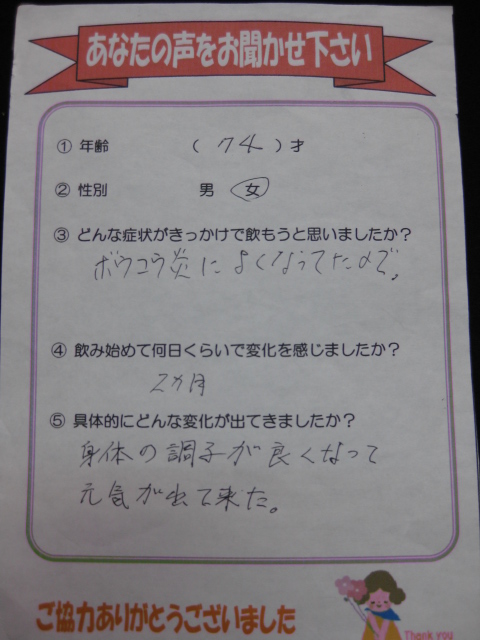 あなたの声をお聞かせ下さい
① 年齢 ( 74 ) 才
② 性別 男 女
③ どんな症状がきっかけで飲もうと思いましたか?
ボウコウ炎によくなってたので。
④ 飲み始めて何日くらいで変化を感じましたか?
2カ月
⑤ 具体的にどんな変化が出てきましたか?
身体の調子が良くなって
元気が出て来た。
ご協力ありがとうございました
Thank you